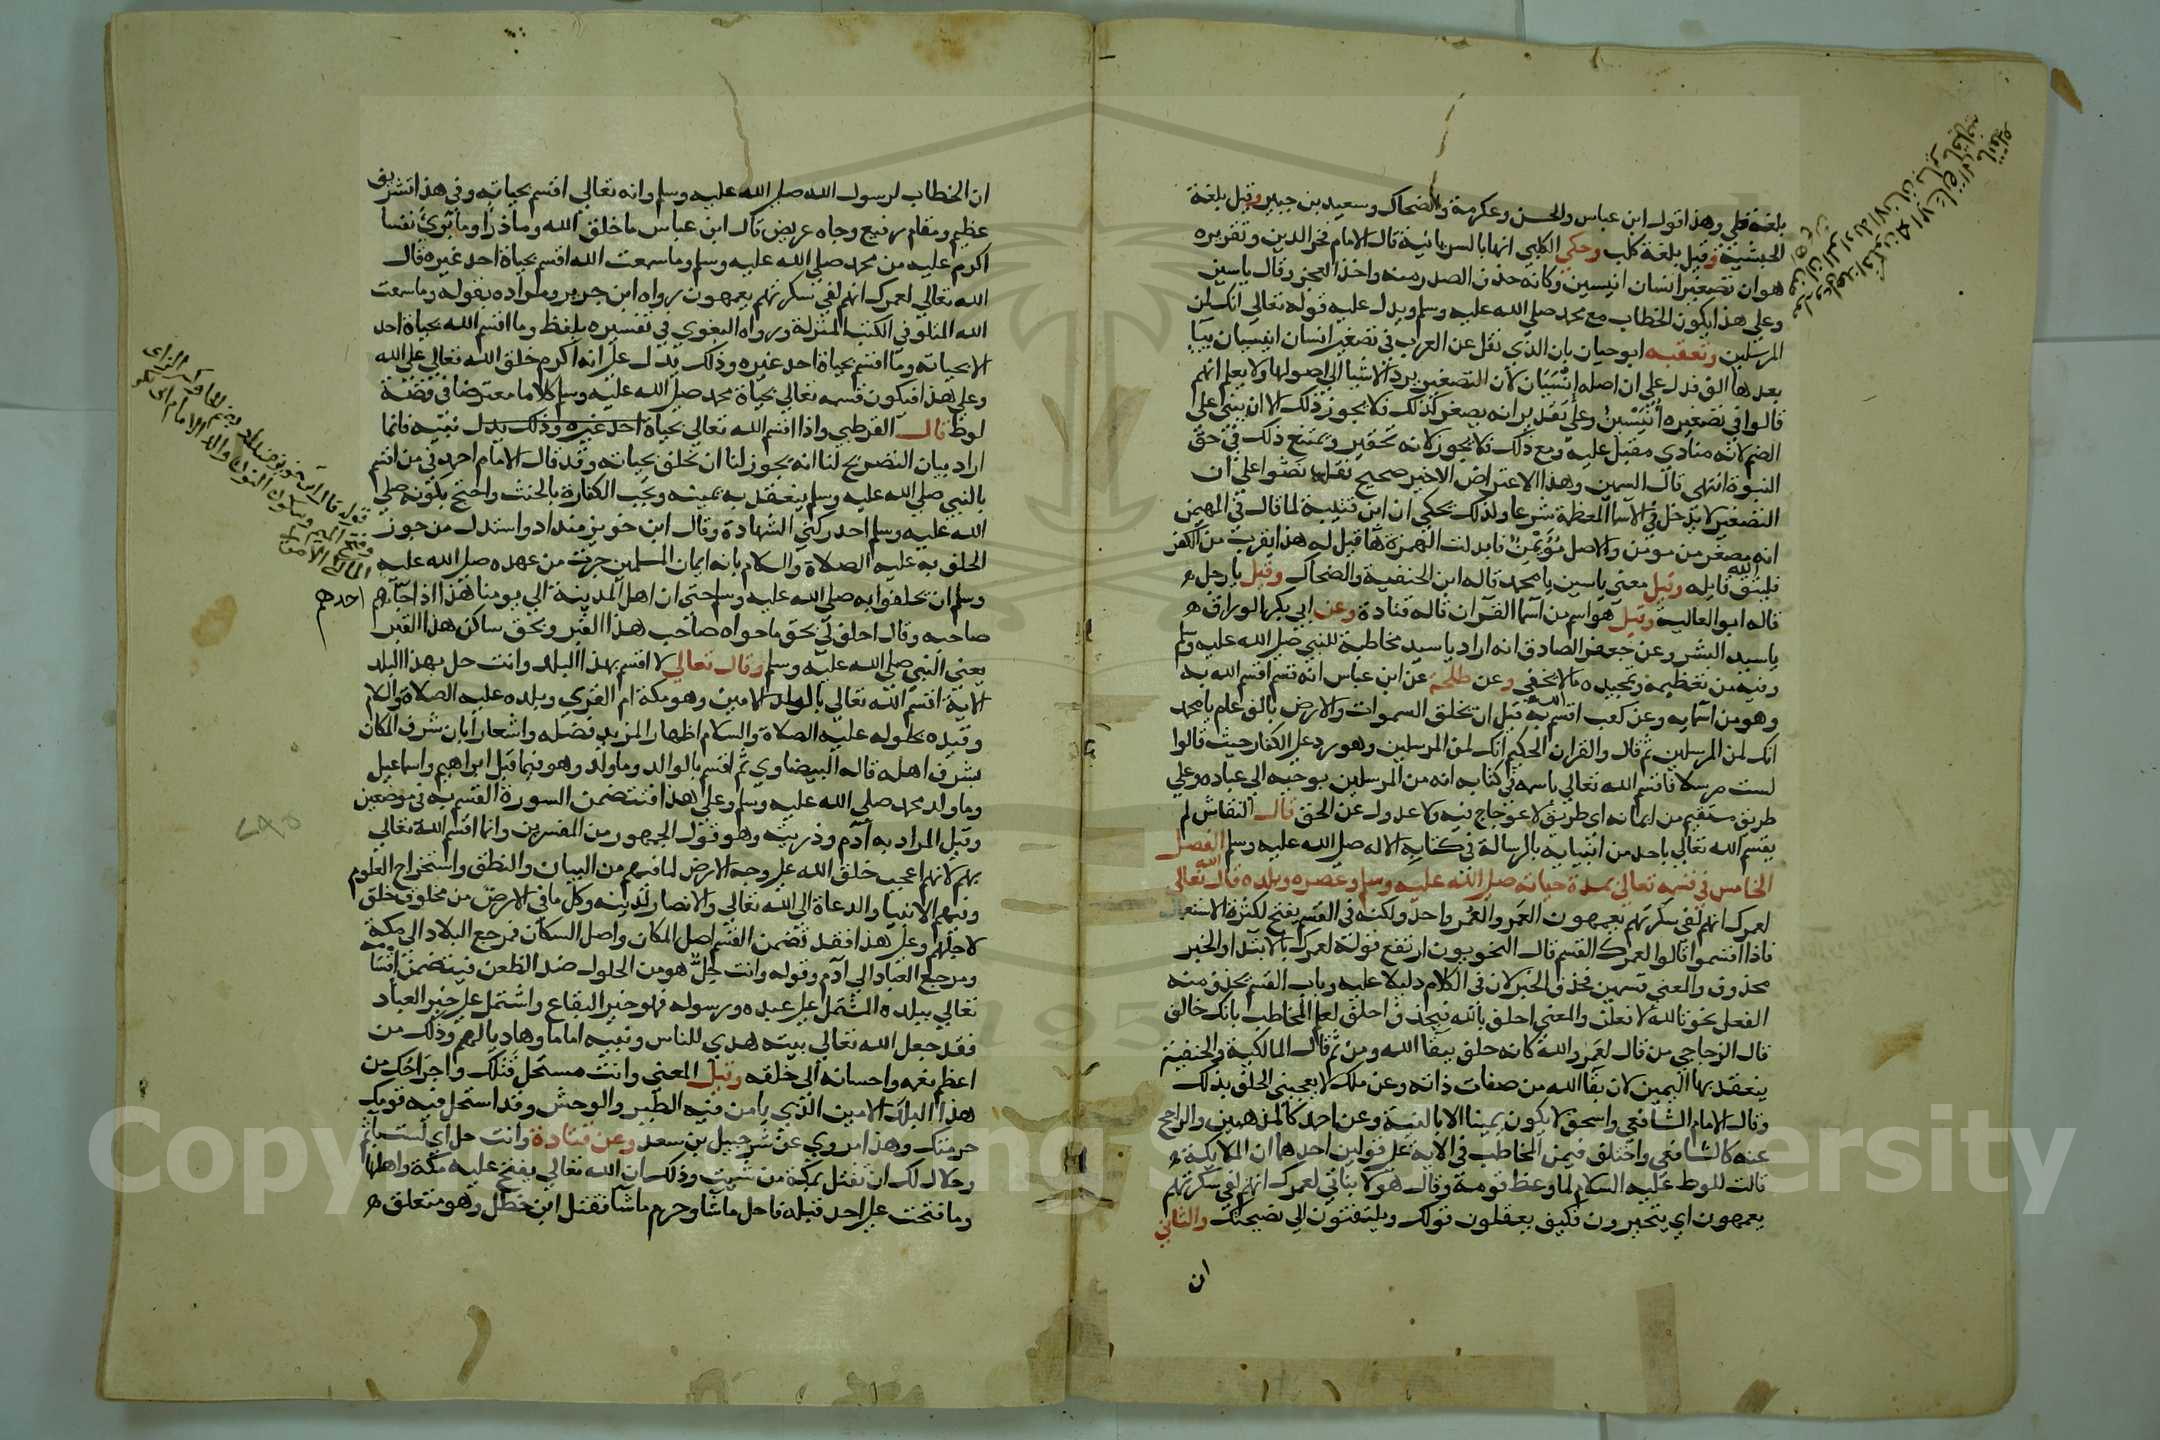 بلغة طي وهذا قول ابن عباس والحسن وعكرمة والضحاك وسعيد بن جبير وقيل بلغة
الحبشية وقيل بلغة كلب وحكى الكلبي انها بالسريانية قال الامام فخر الدين وتقريره
هو ان تصغير انسان انيسين وكانه حذف الصدر منه واخذ العجز وقال ياسين
وعلي هذا يكون الخطاب مع محمد صلي الله عليه وسلم ويدل عليه قوله تعالي انك لمن
المرسلين وتعقبه ابو حيان بان الذي نقل عن العرب في تصغير انسان انيسيان بيا
بعدها الف فدل علي ان اصله انسيان لان التصغير يرد الاشيا الي اصولها ولا يعلم انهم
قالوا في تصغيره انيسين وعلي تقدير انه يصغر كذلك فلا يجوز ذلك الا ان يبني علي
الضم لانه منادي مقبل عليه ومع ذلك فلا يجوز لانه تحقير ويمتنع ذلك في حق
النبوة انتهى قال السمين وهذا الاعتراض الاخير صحيح نصوا علي ان
التصغير لا يدخل في الاسما المعظمة شرعا ولذلك يحكي ان ابن قتيبة لما قال في المهيمن
انه مصغر من مومن والاصل مؤيمن فابدلت الهمزة ها قيل له هذا يقرب من الكفر
فليتق الله قايله وقيل معني ياسين يا محمد قاله ابن الحنفية والضحاك وقيل يا رجل
قاله ابو العالية وقيل هو اسم من اسما القرآن قاله قتادة وعن ابي بكر الوراق
يا سيد البشر وعن جعفر الصادق انه اراد يا سيد مخاطبة للنبي صلي الله عليه وسلم
وفيه من تعظيمه وتمجيده ما لا يخفي وعن طلحة عن ابن عباس انه قسم اقسم الله به
وهو من اسمايه وعن كعب اقسم الله به قبل ان يخلق السموات والارض بالفي عام يا محمد
انك لمن المرسلين ثم قال والقران الحكيم انك لمن المرسلين وهو رد علي الكفار حيث قالوا
لست مرسلا فاقسم الله تعالي باسمه وكتابه انه من المرسلين بوحيه الي عباده وعلي
طريق مستقيم من ايمانه اي طريق لا عوجاج فيه ولا عدول عن الحق قال النقاش لم
يقسم الله تعالي باحد من انبيايه بالرسالة في كتابه الا له صلي الله عليه وسلم الفصل
الخامس في قسمه تعالي بمدة حياته صلي الله عليه وسلم وعصره وبلده قال الله تعالي
لعمرك انهم لفي سكرتهم يعمهون العمر والعمر واحد ولكنه في القسم يفتح لكثرة الاستعمال
فاذا اقسموا قالوا لعمرك القسم قال النحويون ارتفع قوله لعمرك بالابتدا والخبر
محذوف والمعني قسمين فحذف الخبر لان في الكلام دليلا عليه وباب القسم يحذف منه
الفعل نحو تالله لافعلن والمعني احلف بالله فيحذف احلف لعلم المخاطب بانك حالف
قال الزجاجي من قال لعمر الله كانه حلف ببقا الله ومن ثم قال المالكية والحنفية
ينعقد بها اليمين لان بقا الله من صفات ذاته وعن ملك لا يعجبني الحلف بذلك
وقال الامام الشافعي واسحق لا يكون يمينا الا بالنية وعن احمد كالمذهبين والراجح
عنه كالشافعي واختلف فيمن المخاطب في الاية علي قولين احدها ان الملايكة
قالت للوط عليه السلام لما وعظ قومه وقال هولا بناتي لعمرك انهم لفي سكرتهم
يعمهون اي يتحيرون فكيف يعقلون قولك ويلتفتون الي نصيحتك والثاني
ان
ان الخطاب لرسول الله صلي الله عليه وسلم وانه تعالي اقسم بحياته وفي هذا تشريف
عظيم ومقام رفيع وجاه عريض قال ابن عباس ما خلق الله وما ذرا وما برئ نفسا
اكرم عليه من محمد صلي الله عليه وسلم وما سمعت الله اقسم بحياة احد غيره قال
الله تعالي لعمرك انهم لفي سكرتهم يعمهون رواه ابن جرير ومراده بقوله وما سمعت
الله المتلو في الكتب المنزلة ورواه البغوي في تفسيره بلفظ وما اقسم الله بحياة احد
الا بحياته وما اقسم بحياة احد غيره وذلك يدل علي انه اكرم خلق الله تعالي علي الله
وعلي هذا فيكون قسمه تعالي بحياة محمد صلي الله عليه وسلم كلاما معترضا في قصة
لوط قال القرطبي واذا اقسم الله تعالي بحياة احد غيره وذلك يدل نبيه فانما
اراد بيان التصريح لنا انه يجوز لنا ان نحلف بحياته وقد قال الامام احمد في من اقسم
بالنبي صلي الله عليه وسلم ينعقد به يمينه وتجب الكفارة بالحنث واحتج بكونه صلي
الله عليه وسلم احد ركني الشهادة وقال ابن خويزمنداد واستدل من جوز
الحلف به عليه الصلاة والسلام بانه ايمان المسلمين جرت من عهده صلي الله عليه
وسلم ان يحلفوا به صلي الله عليه وسلم حتي ان اهل المدينة الي يومنا هذا اذا حاكم احدهم
صاحبه وقال احلف لي بحق ما حواه صاحب هذا القبر وبحق ساكن هذا القبر
يعني النبي صلي الله عليه وسلم وقال تعالي لا اقسم بهذا البلد وانت حل بهذا البلد
الاية اقسم الله تعالي بالبلد الامين وهو مكة ام القري وبلده عليه الصلاة والسلام
وقيده بحلوله عليه الصلاة والسلام اظهارا لمزيد فضله واشعارا بان شرف المكان
بشرف اهله قاله البيضاوي ثم اقسم بالوالد وما ولد وهو فيما قيل ابراهيم واسماعيل
وما ولد محمد صلي الله عليه وسلم وعلي هذا فتتضمن السورة القسم به في موضعين
وقيل المراد به آدم وذريته وهو قول الجمهور من المفسرين وانما اقسم الله تعالي
بهم لانهم اعجب خلق الله علي وجه الارض لما فيهم من البيان والنطق واستخراج العلوم
وفيهم الانبيا والدعاة الي الله تعالي والانصار لدينه وكل ما في الارض من مخلوق خلق
لاجلهم وعلي هذا فقد تضمن القسم اصل المكان واصل السكان فمرجع البلاد الي مكة
ومرجع العباد الي آدم وقوله وانت حل هو من الحلول ضد الظعن فيتضمن اقسامه
تعالي ببلده المشتمل علي عبده ورسوله فهو خير البقاع واشتمل علي خير العباد
فقد جعل الله تعالي بيته هدي للناس ونبيه اماما وهاديا لهم وذلك من
اعظم نعمه واحسانه الي خلقه وقيل المعني وانت مستحل قتلك واخراجك من
هذا البلد الامين الذي يامن فيه الطير والوحش وقد استحل فيه قومك
حرمتك وهذا مروي عن شرحبيل بن سعد وعن قتادة وانت حل اي لست باثم
وحلال لك ان تقتل بمكة من شيت وذلك ان الله تعالي يفتح عليه مكة واهلها
وما فتحت علي احد قبله فاحل ما شا وحرم ما شا فقتل ابن خطل وهو متعلق
٢٩٥
Copyright © King Saud University
195